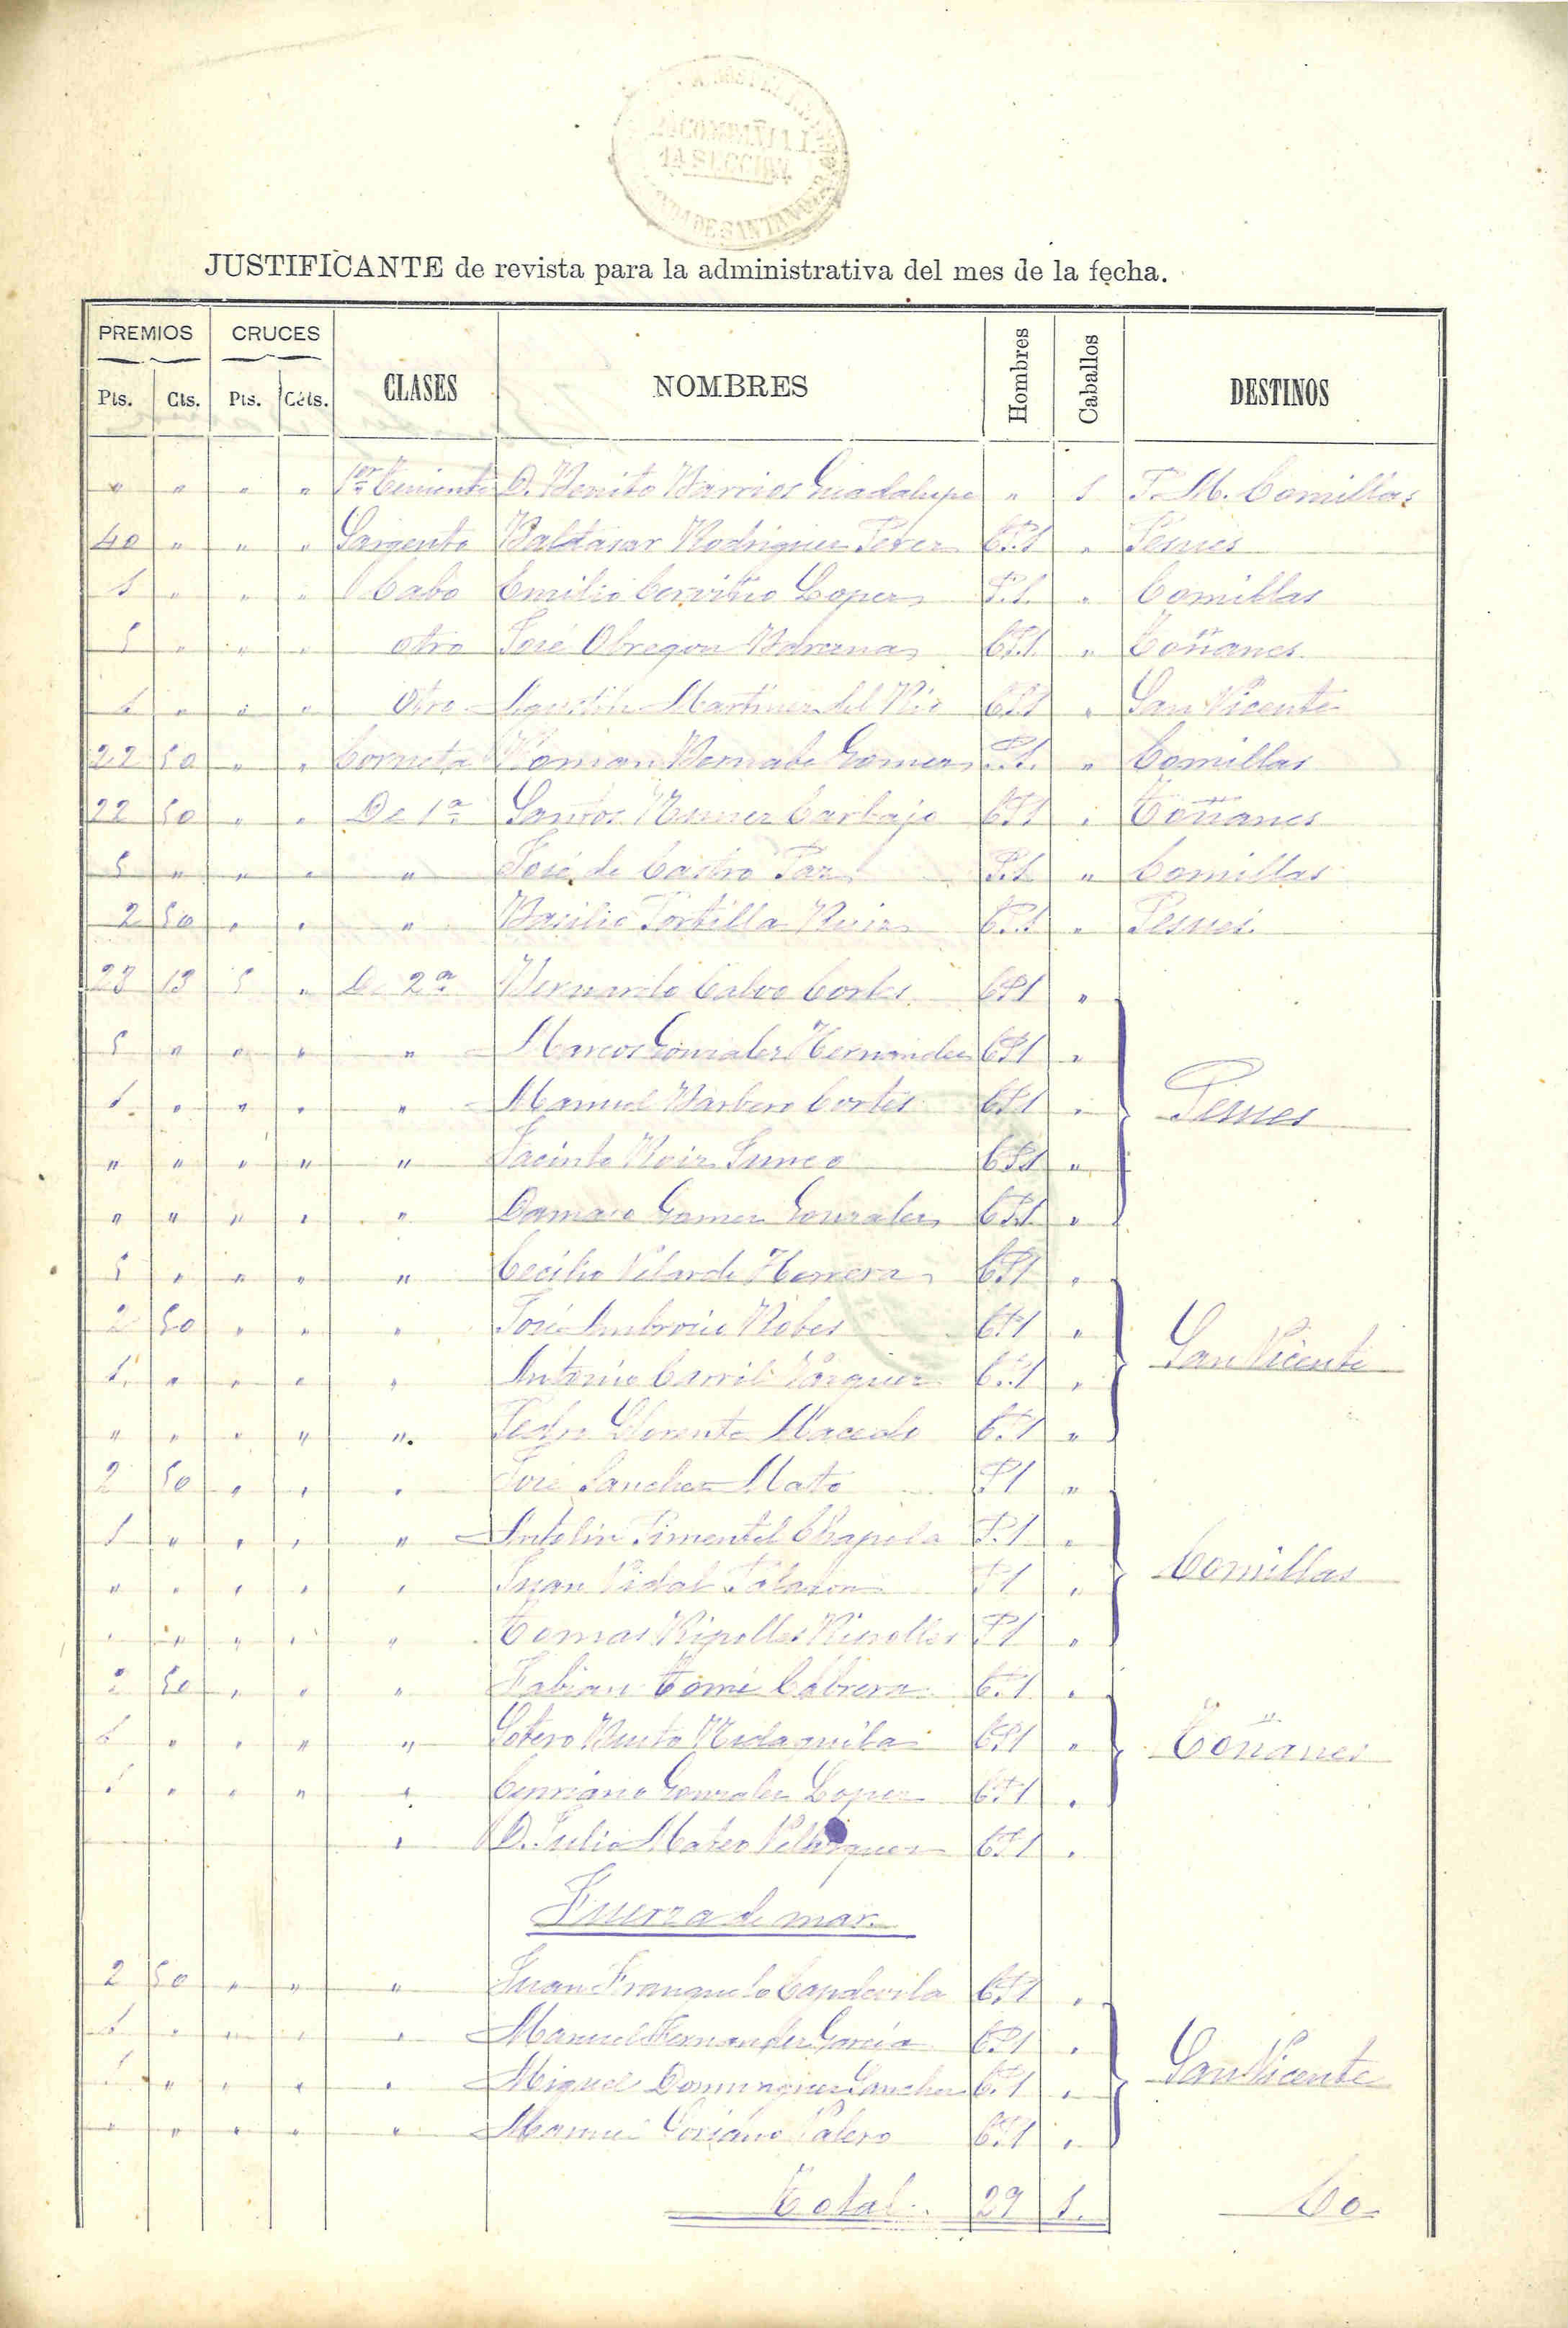 COMPAÑIA
1A SECCION
DE SANTANDER
JUSTIFICANTE de revista para la administrativa del mes de la fecha.
PREMIOS CRUCES CLASES NOMBRES Hombres Caballos DESTINOS
Pts. Cts. Pts. Céts.
" " " " 1er Teniente D. Benito Barrios Guadalupe " 1 P. M. Comillas
40 " " " Sargento Baltasar Rodriguez Perez C.P.1 " Pesues
1 " " " Cabo Emilio Lopez P.1. " Comillas
5 " " " otro José Obregon C.P.1. " Toñanes
1 " " " Otro Agustin Martinez del Rio C.P.1 " San Vicente
22 50 " " Corneta Roman Bernabe Gomez P.1. " Comillas
22 50 " " De 1a Santos Nuñez Carbajo C.P.1 " Toñanes
5 " " " " José de Castro Paz P.1 " Comillas
2 50 " " " Basilio Portilla Ruiz C.P.1 " Pesues
23 13 5 " De 2a Bernardo Calvo Cortes C.P.1 "
5 " " " " Marcos Gonzalez Hernandez C.P.1 "
1 " " " " Manuel Barbero Cortes C.P.1 " Pesues
" " " " " Jacinto Ruiz C.P.1 "
" " " " " Damaso Gomez Gonzalez C.P.1 "
5 " " " " Cecilio Velarde Herrera C.P.1 "
2 50 " " " José Ambrosio Robes C.P.1 "
1 " " " " Antonio Carril Vazquez C.P.1 " San Vicente
" " " " " Pedro Llorente Macedo C.P.1 "
2 50 " " " José Sanchez Mato P.1 "
1 " " " " Antolin Pimentel Chapela P.1 "
" " " " " Juan Vidal P.1 " Comillas
" " " " " Tomas Ripolles Ripolles P.1 "
2 50 " " " Fabian Tomé Cabrera C.P.1 "
1 " " " " Sotero C.P.1 " Toñanes
1 " " " " Cipriano Gonzalez Lopez C.P.1 "
" D. Julio Mateo C.P.1 "
Fuerza de mar.
2 50 " " " Juan Franquelo Capdevila C.P.1 "
1 " " " " Manuel Fernandez Garcia C.P.1 "
1 " " " " Miguel Dominguez Sanchez C.P.1 " San Vicente
" " " " " Manuel Soriano C.P.1 "
Total 29 1. Co